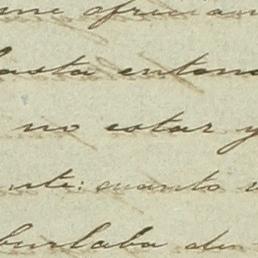 me ofrecian
hasta enton
no estar y
nte: cuanto
burlaba de